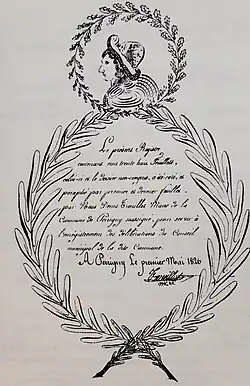 Le présent Registre
contenant cent trente trois Feuillets
celui-ci et le dernier non-compris, a été coté, et
paraphé par premier et dernier feuillet
par Nous Denis Maire de la
Commune de Périgny soussigné, pour servir à
l'enregistrement des délibérations du Conseil
municipal de la dite Commune.
A Périgny Le premier Mai 1826